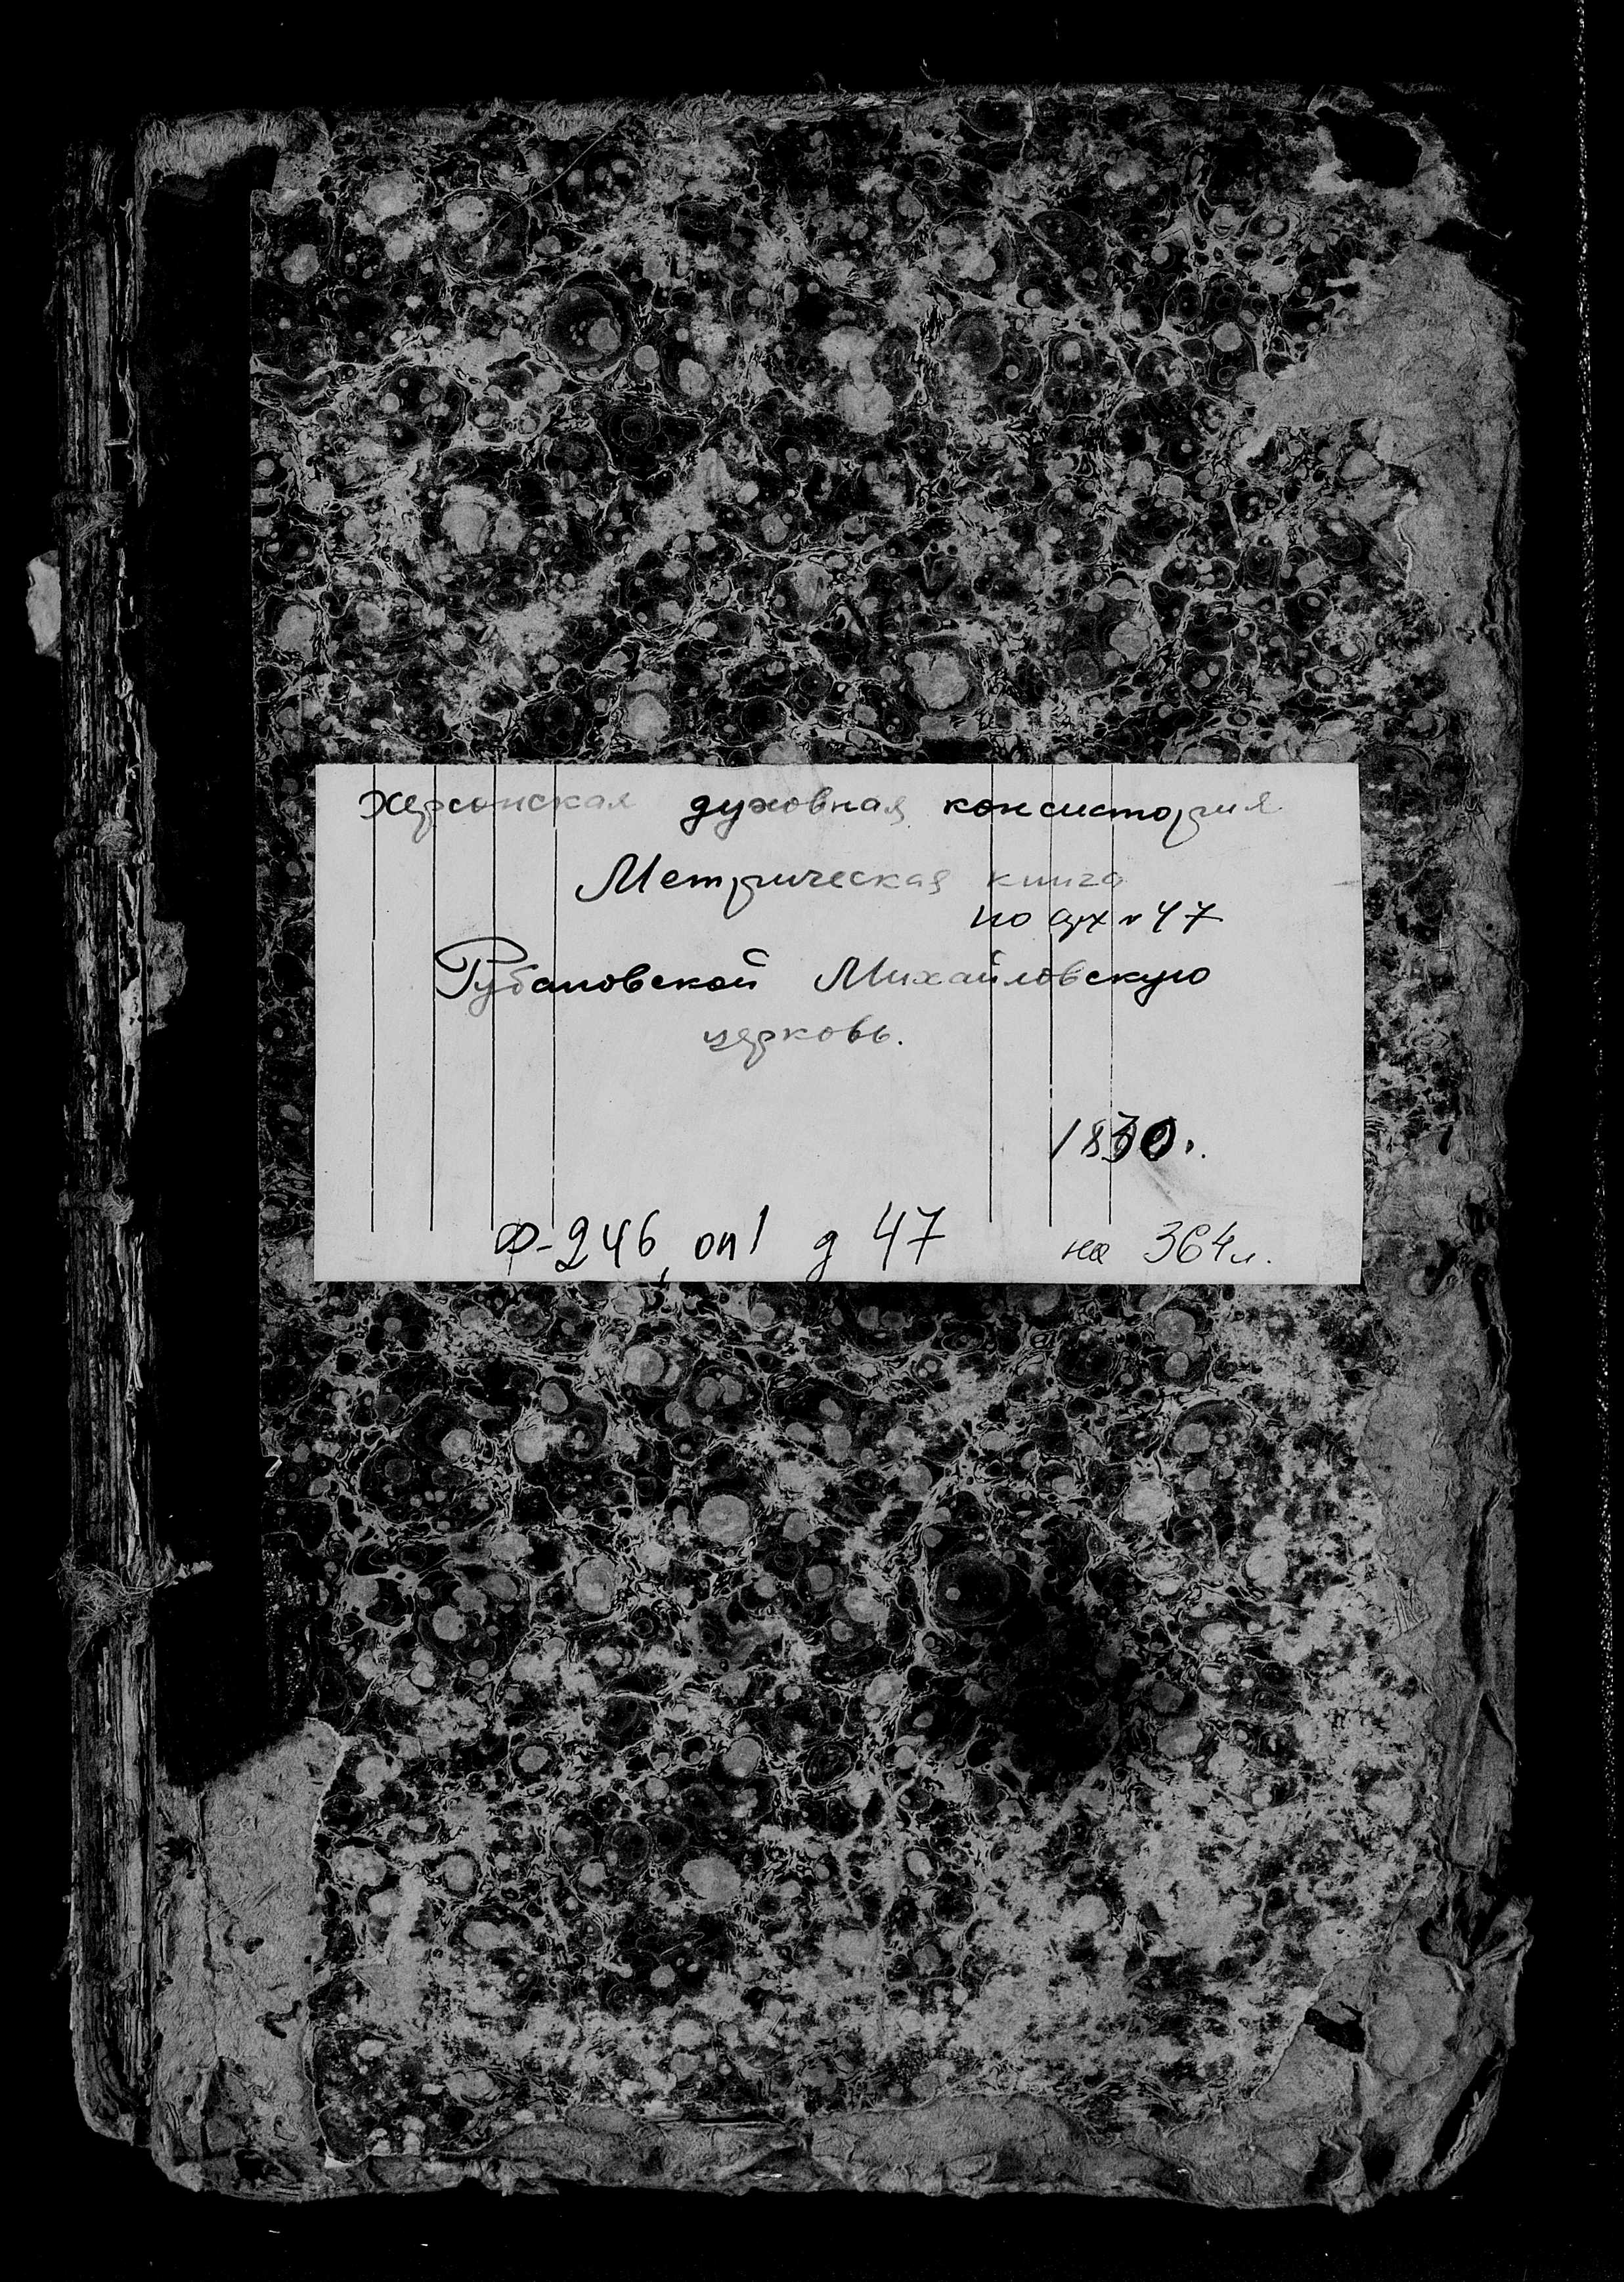 Херсонская духовная консистория
Метрическая книга
по арх № 47
Рубановской Михайловскую
церковь.
1830г.
Ф-246, оп1 д 47 на 364л.